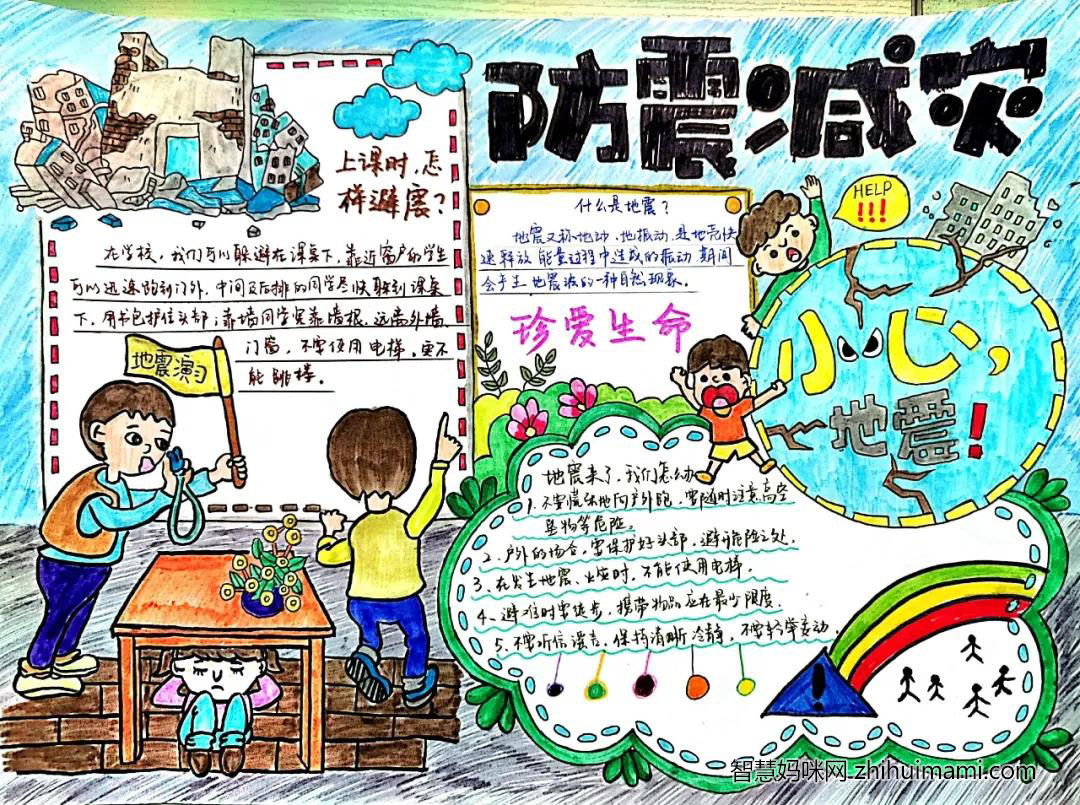 防震减灾
上课时,怎
样避震?
在学校,我们可以躲避在课桌下,靠近窗户的学生
可以迅速跑到门外,中间及后排的同学尽快躲到课桌
下,用书包护住头部;靠墙同学紧靠墙根,远离外墙、
门窗,不要使用电梯,更不
能跳楼。
地震演习
什么是地震?
地震又称地动、地振动,是地壳快
速释放能量过程中造成的振动,期间
会产生地震波的一种自然现象。
珍爱生命
HELP
!!!
小心,
地震!
地震来了,我们怎么办
1.不要慌张地向户外跑,要随时注意高空
坠物等危险。
2.户外的场合,要保护好头部,避开危险之处.
3.在发生地震、火灾时,不能使用电梯.
4.避难时要徒步,携带物品应在最少限度.
5.不要听信谣言,保持清晰冷静,不要轻举妄动.
智慧妈咪网 zhihuimami.com